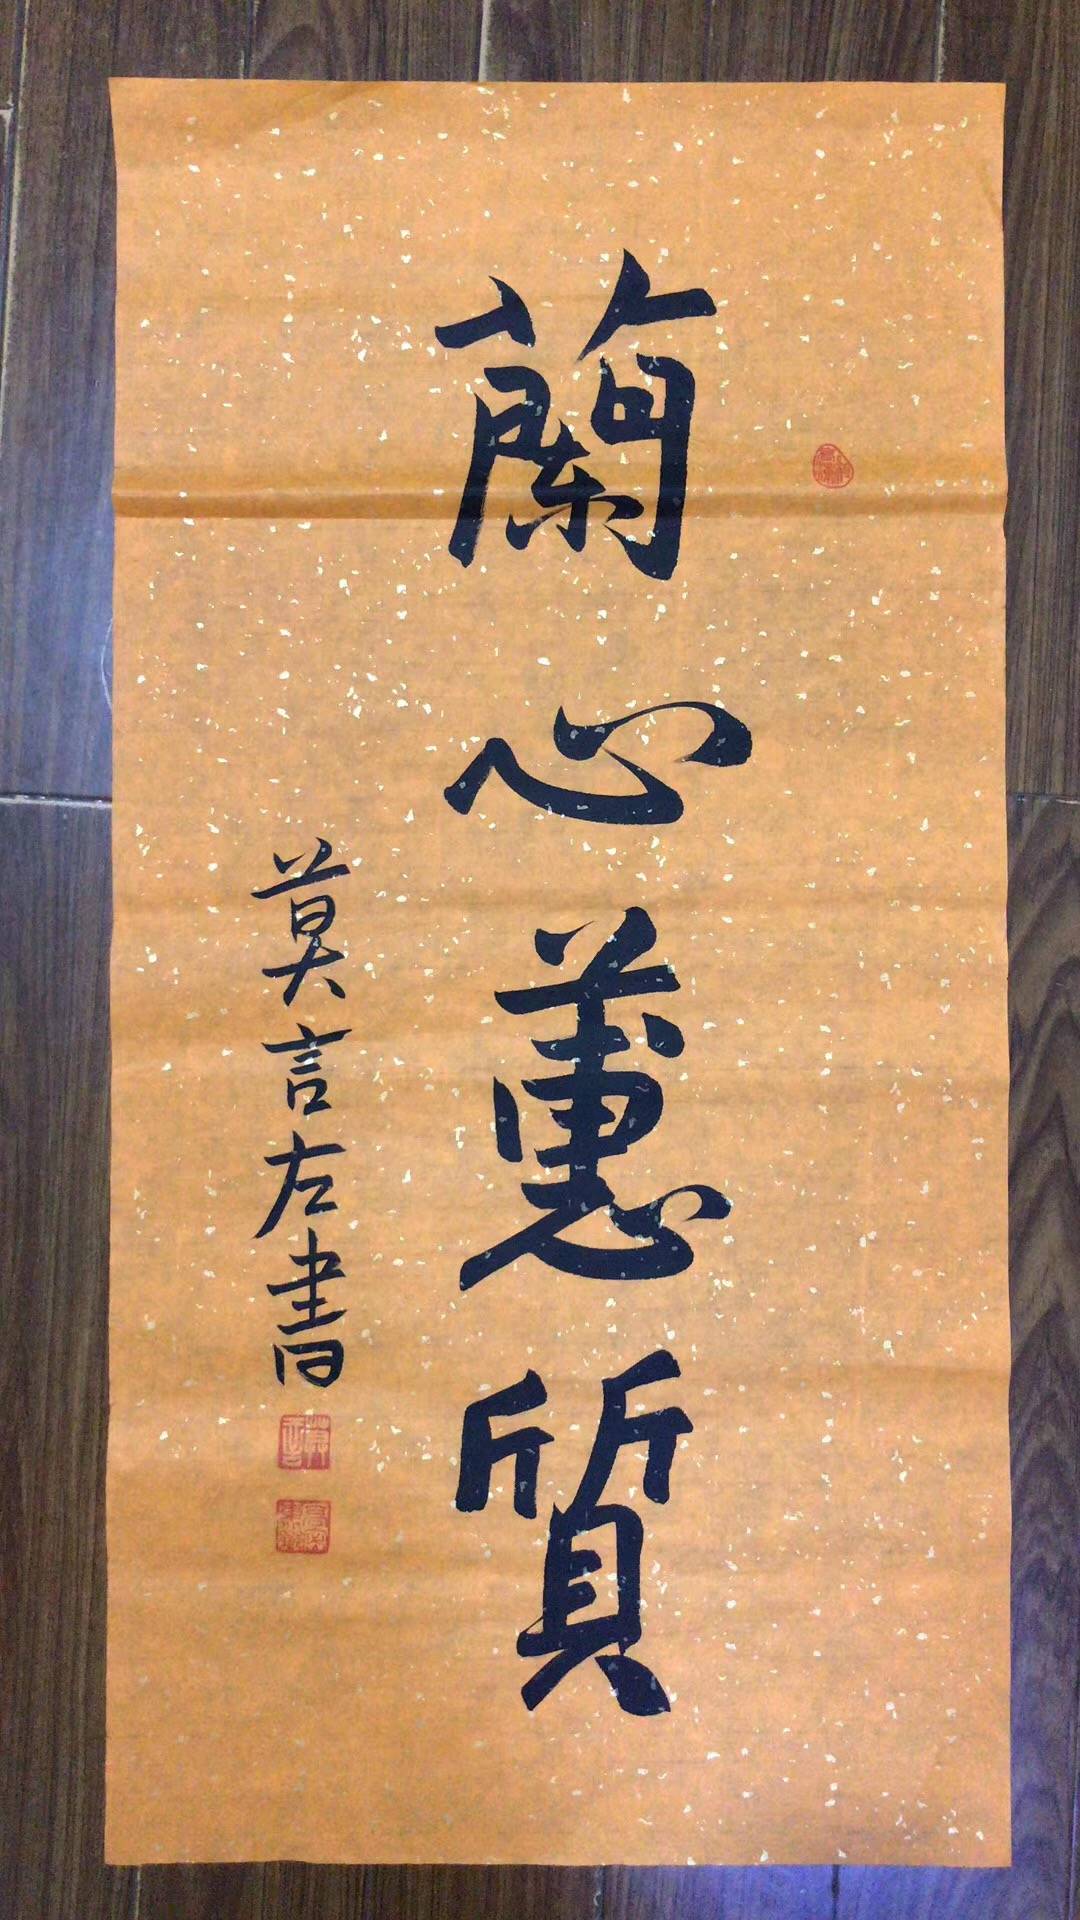 蘭心蕙質
莫言左書
莫言